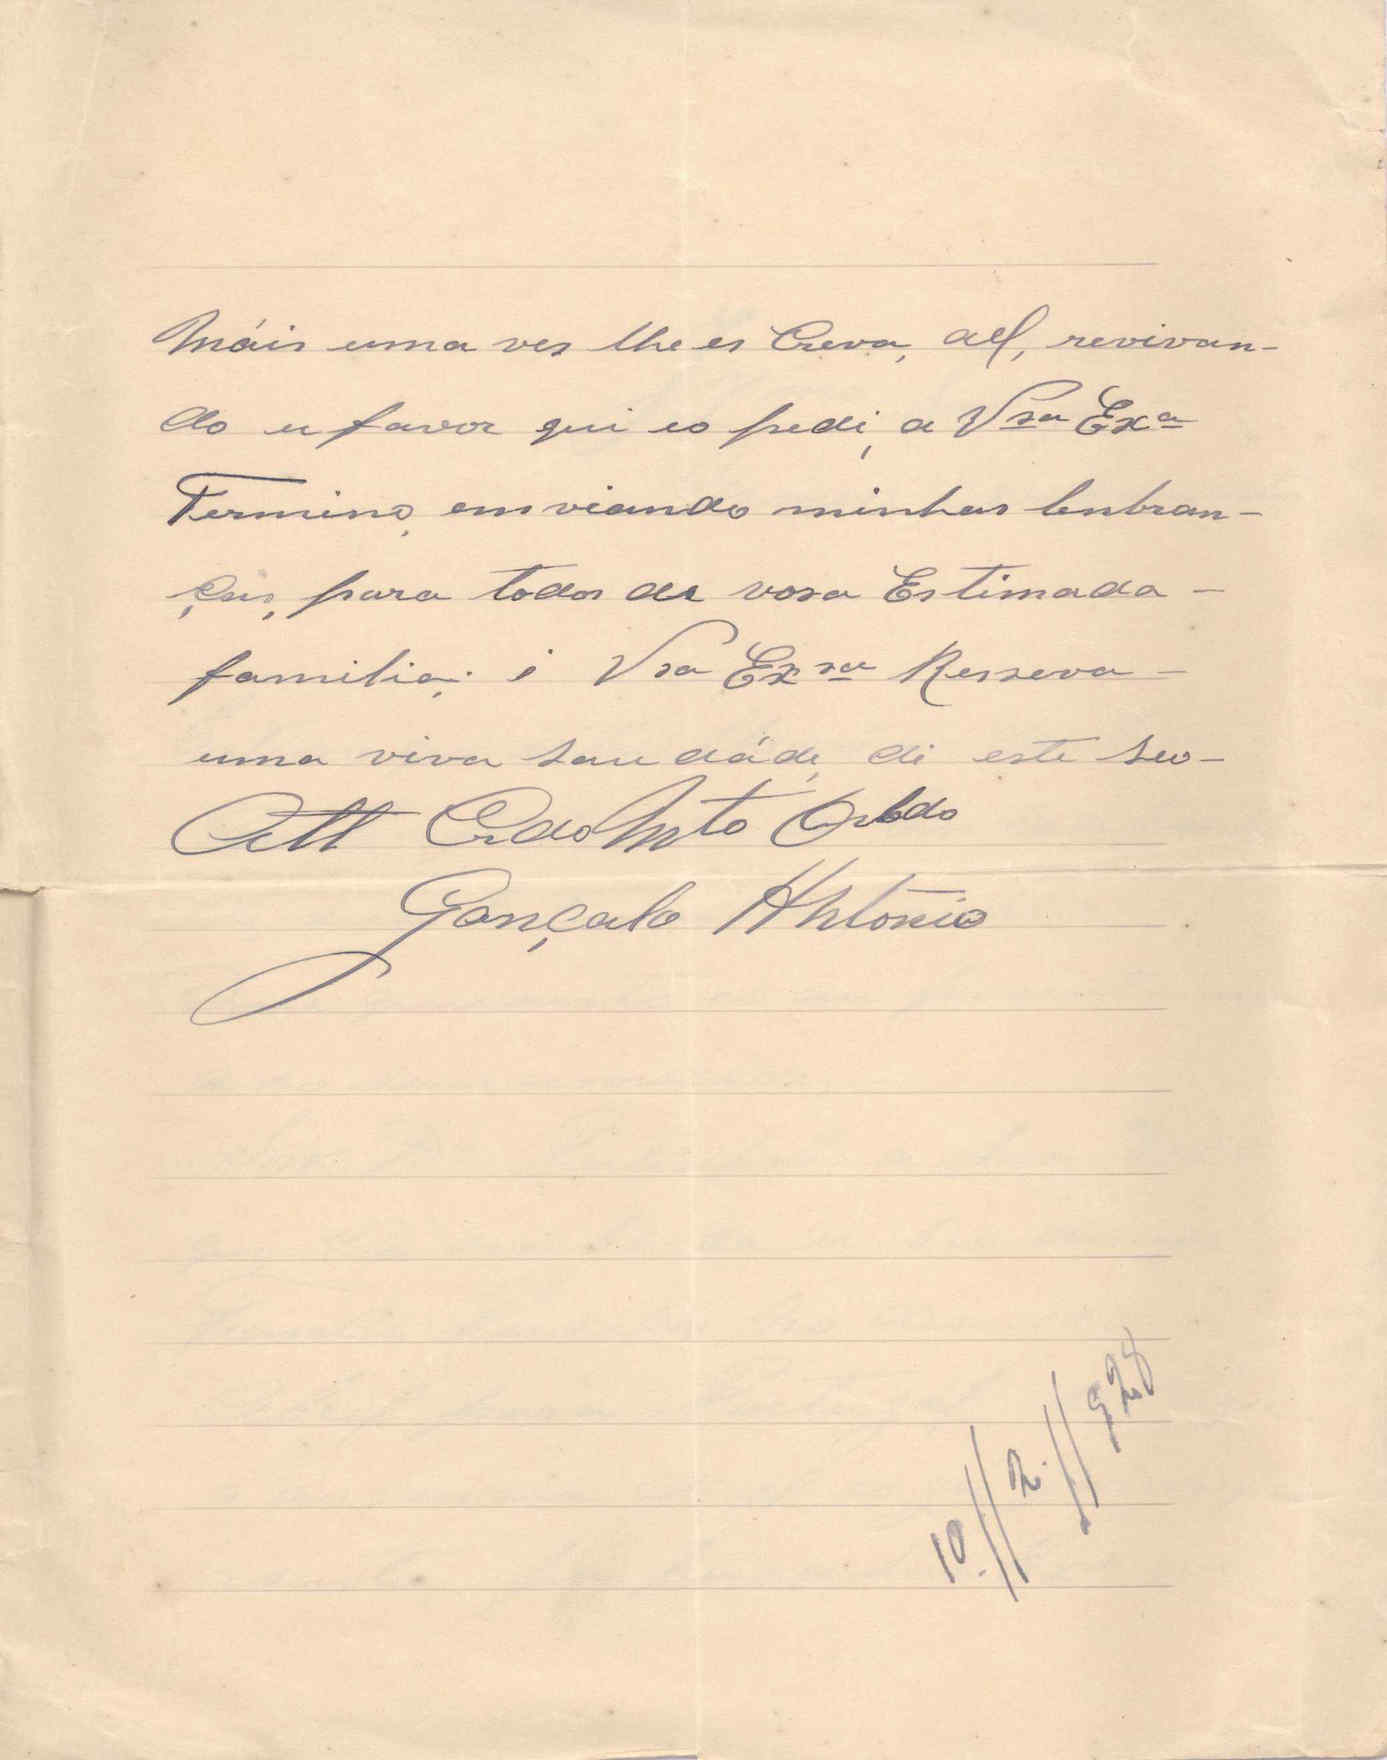 Máis uma ves lhe es Creva, ael, revivan-
do u favor qui eo pedi, a Vsa Exa
Termino, emviando minhas lenbran-
ças, para todos da vosa Estimada -
familia; i Vsa Exsa Resseva -
uma viva saudáde, di este seo -
Att Crdo Mto Obdo
Gonçalo Antonio
10//2//928